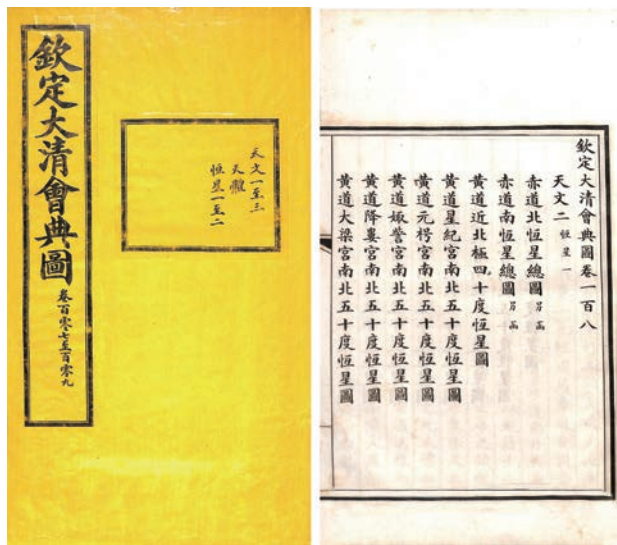 欽定大清會典圖
卷百零七至百零九
天文一至三
天體
恆星一至二
欽定大清會典圖卷一百八
天文二 恆星一
赤道北恆星總圖 另函
赤道南恆星總圖 另函
黃道近北極四十度恆星圖
黃道星紀宮南北五十度恆星圖
黃道元枵宮南北五十度恆星圖
黃道娵訾宮南北五十度恆星圖
黃道降婁宮南北五十度恆星圖
黃道大梁宮南北五十度恆星圖